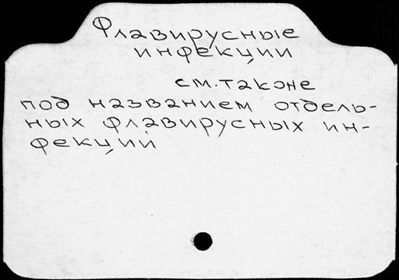 Флавирусные
инфекции
см. также
под названием отдель-
ных флавирусных ин-
фекций